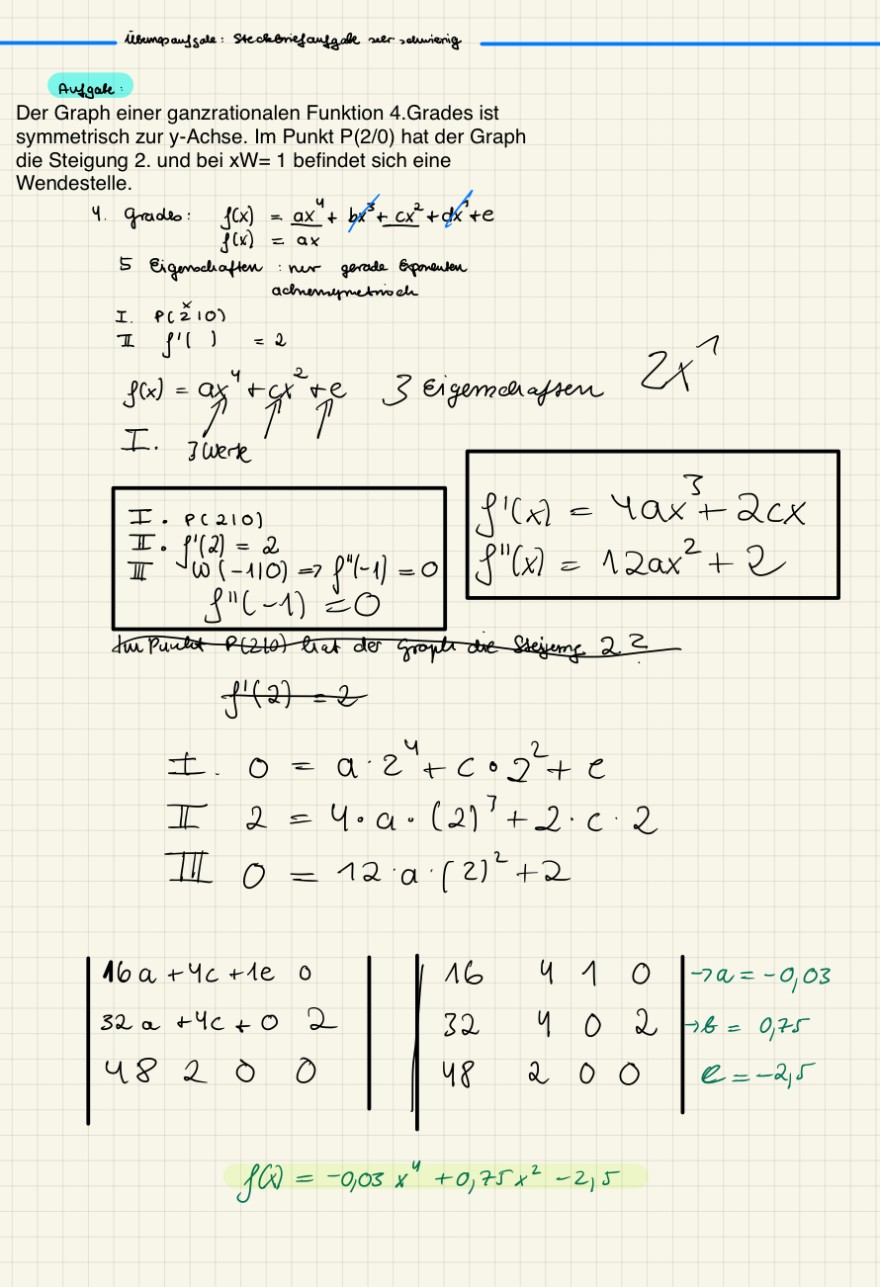 Übungsaufgabe: Steckbriefaufgabe sehr schwierig
Aufgabe:
Der Graph einer ganzrationalen Funktion 4.Grades ist
symmetrisch zur y-Achse. Im Punkt P(2/0) hat der Graph
die Steigung 2. und bei xW= 1 befindet sich eine
Wendestelle.
4. grades: f(x) = ax⁴ + bx³ + cx² + dx¹ + e
f(x) = ax
5 Eigenschaften : nur gerade Exponenten
achsensymetrisch
x
I. P(2|0)
II f'( ) = 2
2x¹
f(x) = ax⁴ + cx² + e 3 Eigenschaften
I. 3 Werte
I. P(2|0)
II. f'(2) = 2
III W(-1|0) => f''(-1) = 0
f''(-1) = 0
f'(x) = 4ax³ + 2cx
f''(x) = 12ax² + 2
Im Punkt P(2|0) hat der Graph die Steigung 2?
f'(2) = 2
I. 0 = a · 2⁴ + c · 2² + e
II 2 = 4 · a · (2)³ + 2 · c · 2
III 0 = 12 · a · (2)² + 2
16a + 4c + 1e 0 16 4 1 0 → a = -0,03
32a + 4c + 0 2 32 4 0 2 → b = 0,75
48 2 0 0 48 2 0 0 e = -2,5
f(x) = -0,03x⁴ + 0,75x² - 2,5